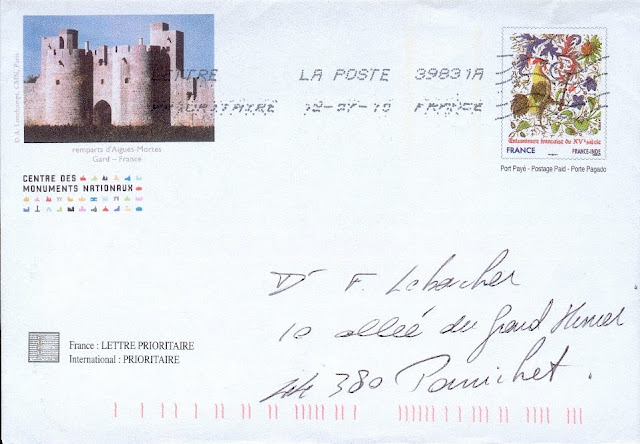 LETTRE LA POSTE 39831A
PRIORITAIRE 12-07-10 FRANCE
remparts d'Aigues-Mortes
Gard – France
CENTRE DES
MONUMENTS NATIONAUX
Enluminure française du XVe siècle
FRANCE FRANCE-INDE
Port Payé - Postage Paid - Porte Pagado
Dr F. Lebacher
10 allée du Grand
44 380 Pornichet.
France : LETTRE PRIORITAIRE
International : PRIORITAIRE